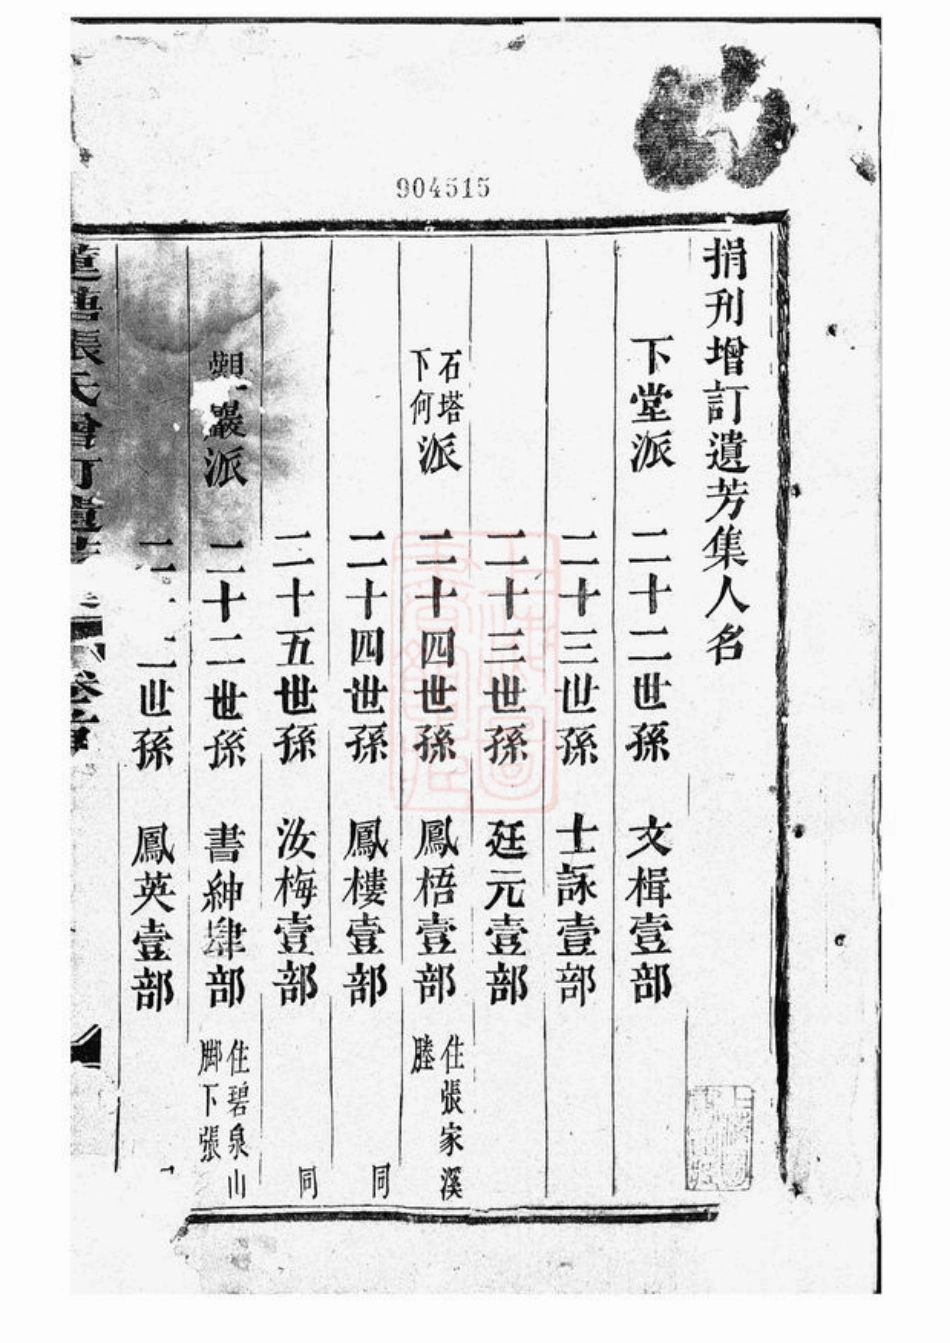 904515
捐刋增訂遺芳集人名
下堂派 二十二世孫 文楫壹部
二十三世孫 士詠壹部
二十三世孫 廷元壹部
石塔下何派 二十四世孫 鳳梧壹部 住張家溪塍
二十四世孫 鳳樓壹部 同
二十五世孫 汝梅壹部 同
巖派 二十二世孫 書紳肆部 住碧泉山脚下張
二世孫 鳳英壹部
張氏增訂遺 卷首